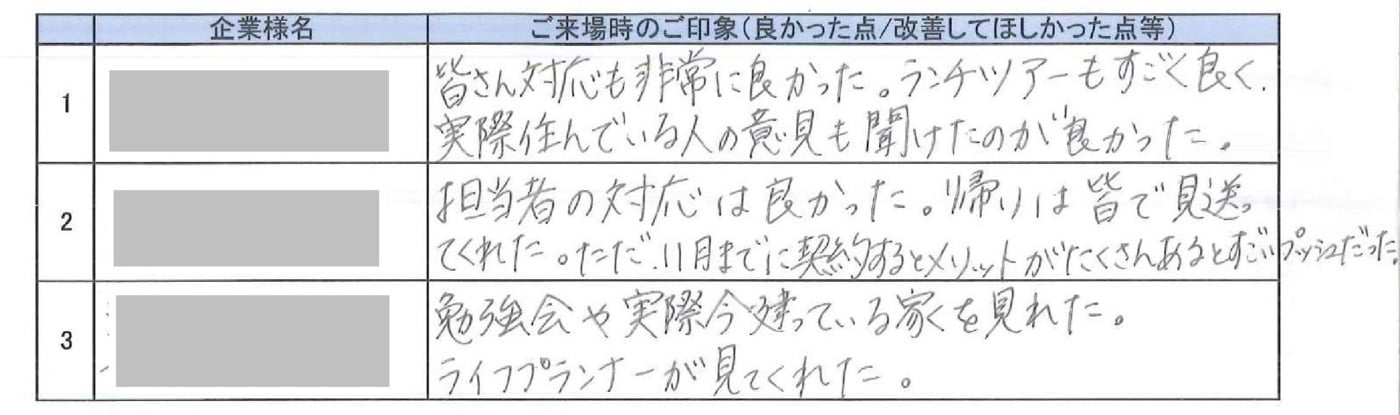 企業様名 ご来場時のご印象(良かった点/改善してほしかった点等)
1
皆さん対応も非常に良かった。ランチツアーもすごく良く、
実際住んでいる人の意見も聞けたのが良かった。
2
担当者の対応は良かった。帰りは皆で見送っ
てくれた。ただ、11月までに契約するとメリットがたくさんあるとすごいプッシュだった。
3
勉強会や実際今建っている家を見れた。
ライフプランナーが見てくれた。